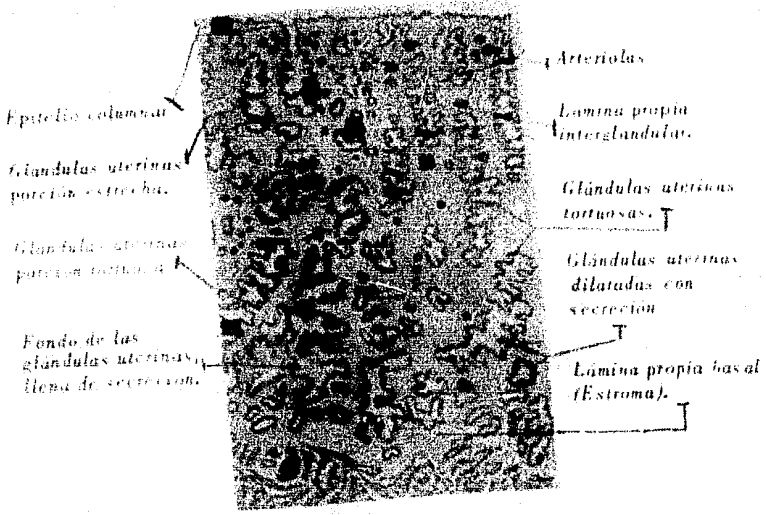 Epitelio columnar
Glándulas uterinas
porción estrecha.
Glándulas uterinas
porción
Fondo de las
glándulas uterinas,
llena de secreción.
Arteriolas
Lámina propia
interglandular.
Glándulas uterinas
tortuosas.
Glándulas uterinas
dilatadas con
secreción
Lámina propia basal
(Estroma).